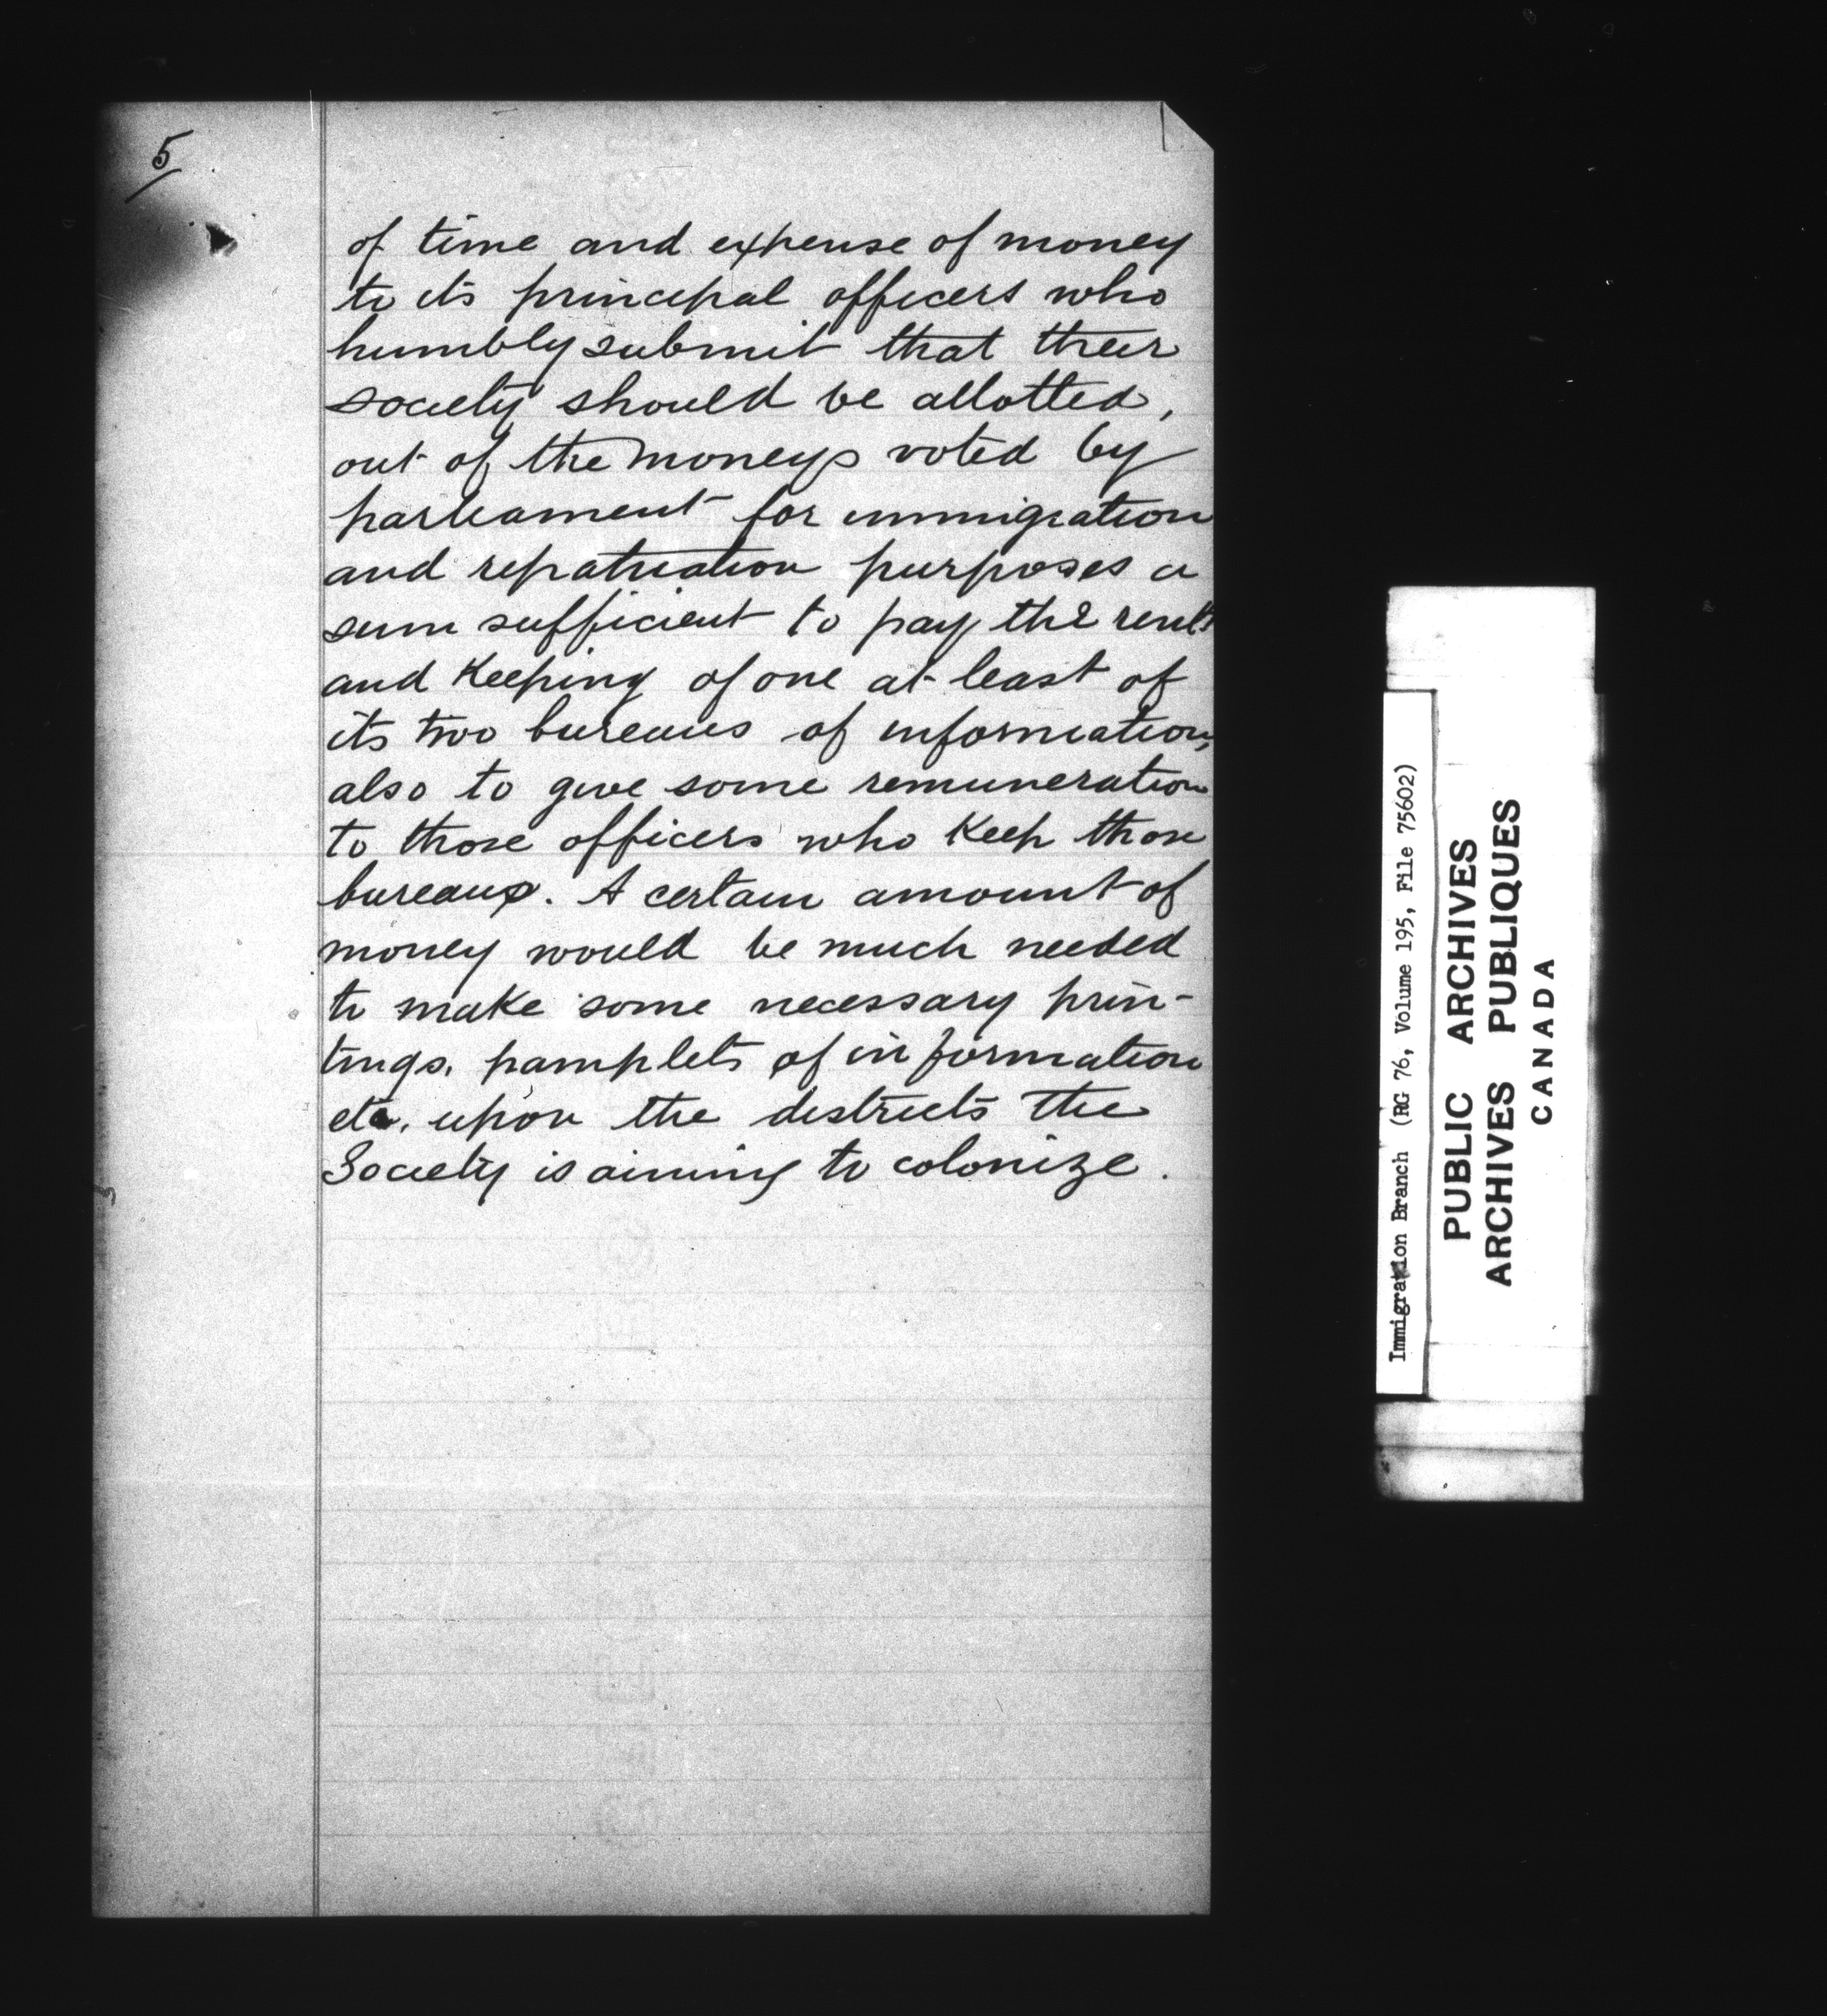 5
of time and expense of money
to its principal officers who
humbly submit that their
society should be allotted,
out of the moneys voted by
parliament for immigration
and repatriation purposes a
sum sufficient to pay the rent
and keeping of one at least of
its two bureaus of information,
also to give some remuneration
to those officers who keep those
bureaux. A certain amount of
money would be much needed
to make some necessary prin-
tings, pamplets of information
etc, upon the districts the
Society is aiming to colonize.
Immigration Branch (RG 76, Volume 195, File 75602)
PUBLIC ARCHIVES
ARCHIVES PUBLIQUES
CANADA